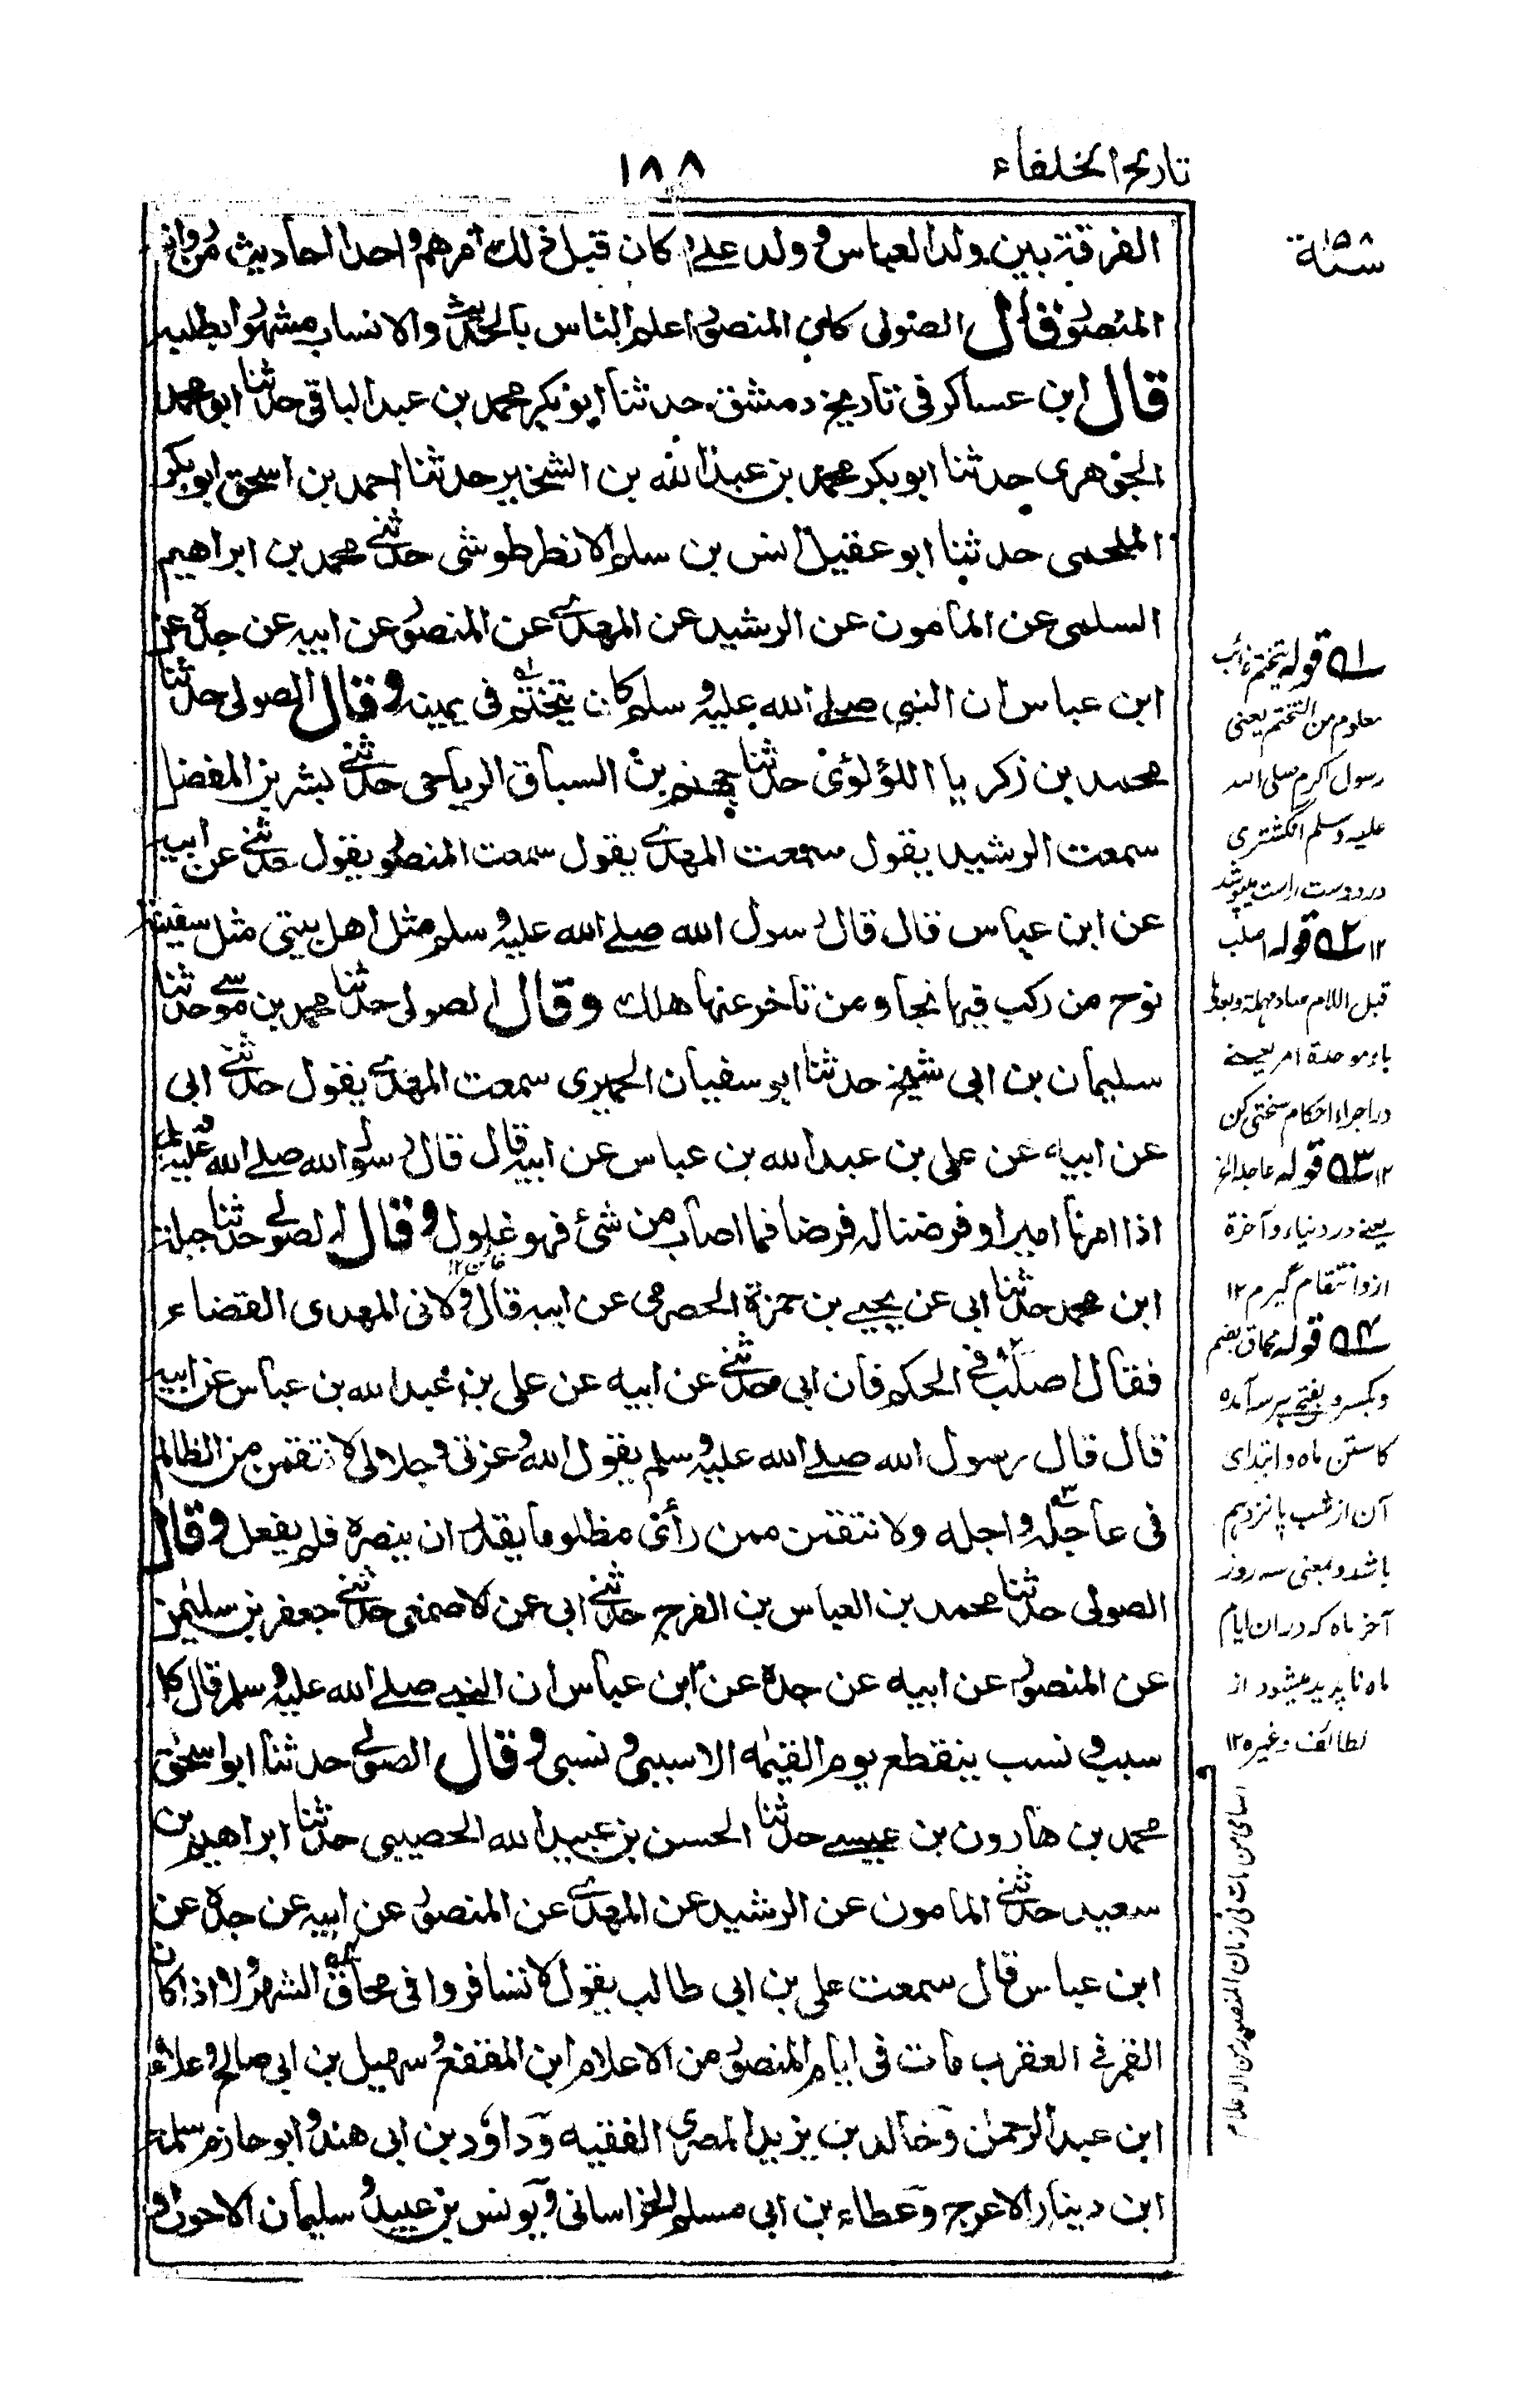 تاريخ الخلفاء
١٨٨
الفرقة بين ولد العباس و ولد على و كان قبل ذلك امرهم واحدا احاديث من رواية
المنصور قال الصولى كان المنصور اعلم الناس بالحديث والانساب مشهورا بطلبه
قال ابن عساكر فى تاريخ دمشق حدثنا ابو بكر محمد بن عبد الباقى حدثنا ابو محمد
الجوهرى حدثنا ابو بكر محمد بن عبد الله بن الشخير حدثنا احمد بن اسحق ابو بكر
الملحمى حدثنا ابو عقيل انس بن سلم الانطرطوشى حدثنى محمد بن ابراهيم
السلمى عن المامون عن الرشيد عن المهدى عن المنصور عن ابيه عن جده عن
ابن عباس ان النبى صلى الله عليه و سلم كان يتختم فى يمينه و قال الصولى حدثنا
محمد بن زكريا اللؤلؤى حدثنا جهنم بن السباق الرياحى حدثنى بشر بن المفضل
سمعت الرشيد يقول سمعت المهدى يقول سمعت المنصور يقول حدثنى عن ابيه
عن ابن عباس قال قال رسول الله صلى الله عليه و سلم مثل اهل بيتى مثل سفينة
نوح من ركب فيها نجا و من تاخر عنها هلك و قال الصولى حدثنا محمد بن موسى حدثنا
سليمان بن ابى شيخ حدثنا ابو سفيان الحميرى سمعت المهدى يقول حدثنى ابى
عن ابيه عن على بن عبد الله بن عباس عن ابيه قال قال رسول الله صلى الله عليه وسلم
اذا امرنا اميرا و فرضنا له فرضا فما اصاب من شئ فهو غلول و قال الصولى حدثنا جبلة
ابن محمد حدثنا ابى عن يحيى بن حمزة الحصرمى عن ابيه قال ولانى المهدى القضاء
فقال اصلب فى الحكم فان ابى حدثنى عن ابيه عن على بن عبد الله بن عباس عن ابيه
قال قال رسول الله صلى الله عليه و سلم يقول الله و عزتى و جلالى لانتقمن من الظالم
فى عاجله و اجله و لانتقمن ممن رأى مظلوما يقدر ان ينصره فلم يفعل و قال
الصولى حدثنا محمد بن العباس بن الفرج حدثنى ابى عن الاصمعى حدثنى جعفر بن سليمن
عن المنصور عن ابيه عن جده عن ابن عباس ان النبى صلى الله عليه و سلم قال كل
سبب و نسب ينقطع يوم القيمه الا سببى و نسبى و قال الصولى حدثنا ابو اسحق
محمد بن هارون بن عيسى حدثنا الحسن بن عبيد الله الحصيبى حدثنا ابراهيم بن
سعيد حدثنى المامون عن الرشيد عن المهدى عن المنصور عن ابيه عن جده عن
ابن عباس قال سمعت على بن ابى طالب يقول لا تسافروا فى محاق الشهر و لا اذا كان
القمر فى العقرب مات فى ايام المنصور من الاعلام ابن المقفع و سهيل بن ابى صالح و علاء
ابن عبد الرحمن و خالد بن يزيد المصرى الفقيه و داود بن ابى هند و ابو حازم سلمة
ابن دينار الاعرج و عطاء بن ابى مسلم الخراسانى و يونس بن عبيد و سليمان الاحول و
سنة ١٥٨
١ قوله يتختم غائب
معلوم من التختم يعنى
رسول اكرم صلى الله
عليه وسلم انگشترى
در دست راست ميپوشد
١٢ ٢ قوله اصلب
قبل اللام صاد مهملة وبعدها
باء موحدة امر يعنى
در اجراء احكام سختى كن
١٢ ٣ قوله عاجله الخ
يعنى در دنياء و آخرة
ازو انتقام گيرم ١٢
٤ قوله محاق بضم
و بكسر و بفتح بر سه آمده
كاستن ماه و ابتداى
آن از شب پانزدهم
باشد و بمعنى سه روز
آخر ماه كه در ان ايام
ماه ناپديد ميشود از
لطائف وغيره ١٢
اسامى من مات فى زمان المنصور من الاعلام